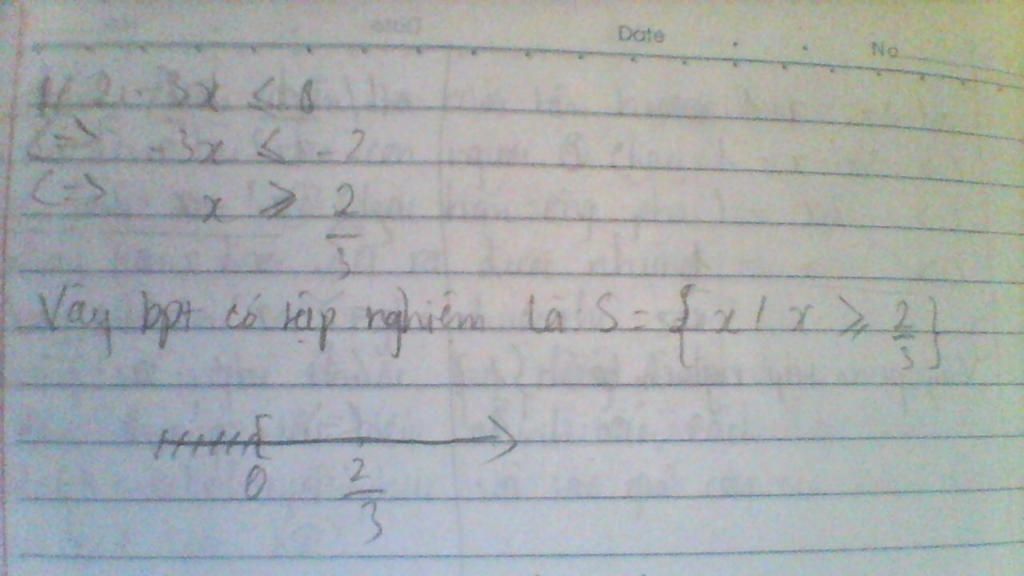 Date No
1/ 2 - 3x ≤ 0
<=> -3x ≤ -2
<=> x ≥ 2/3
Vậy bpt có tập nghiệm là S = {x / x ≥ 2/3}
0 2/3